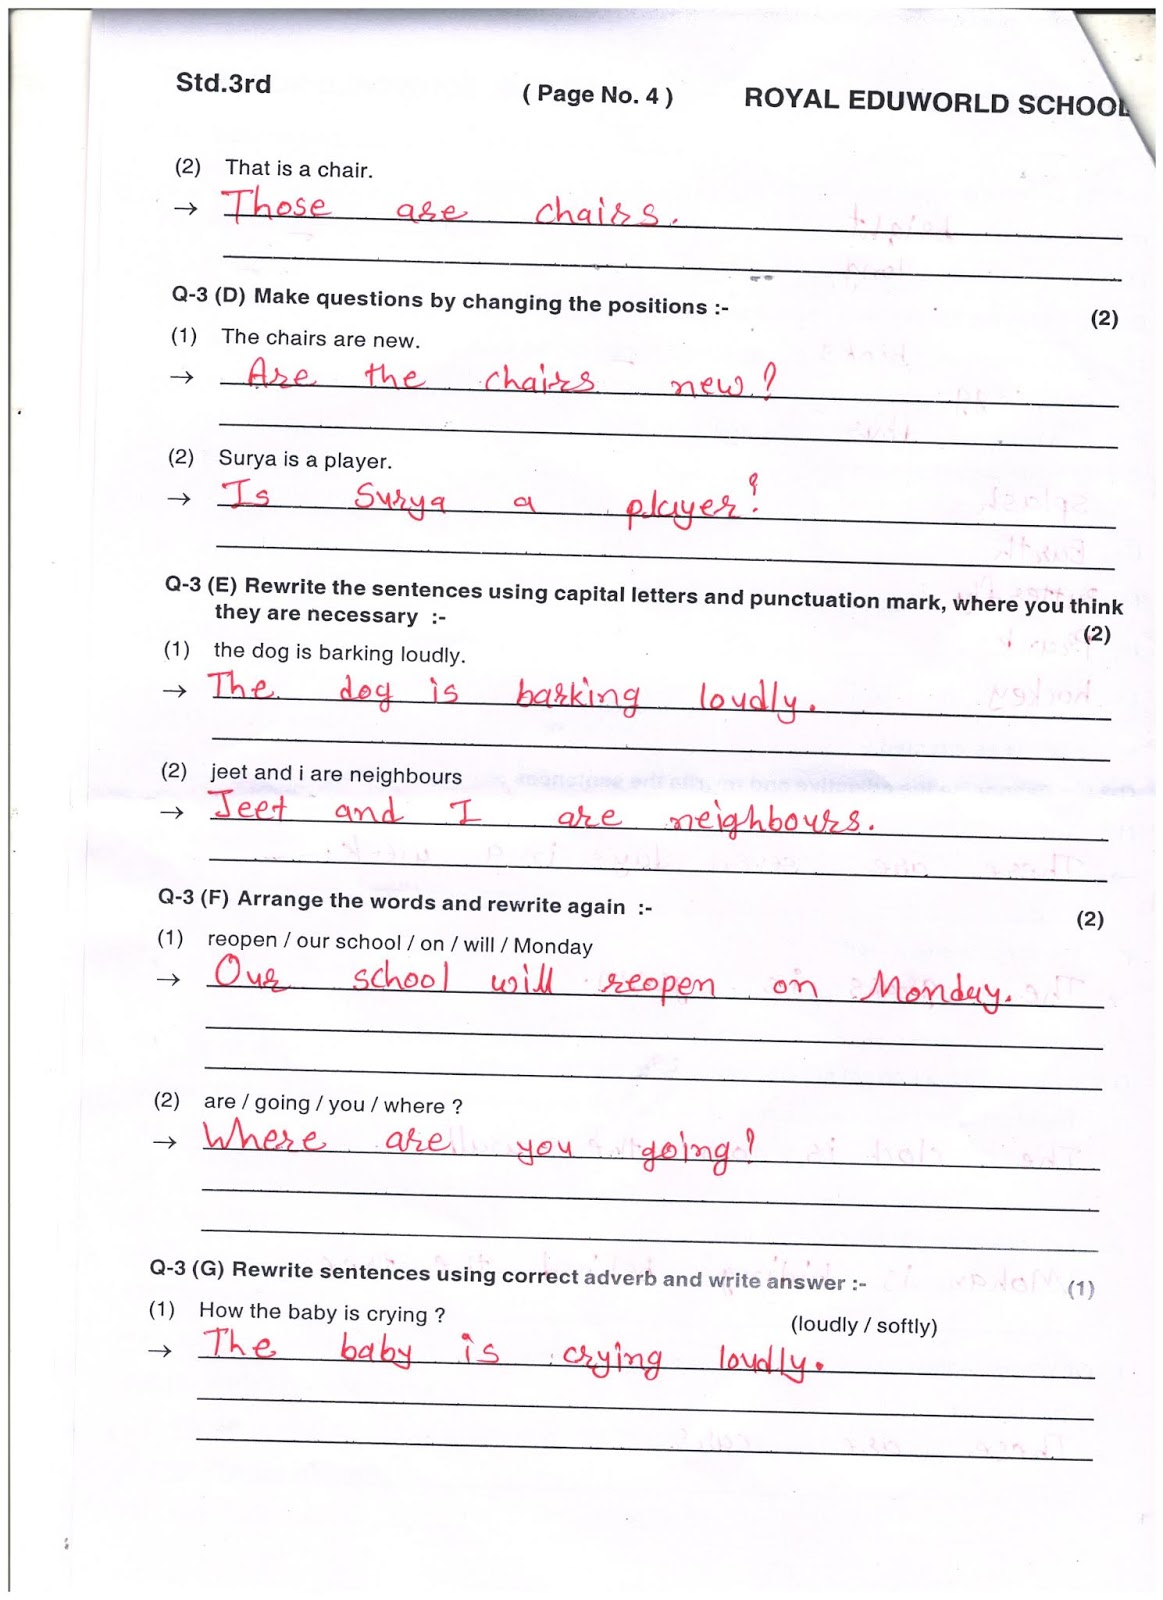 Std.3rd ( Page No. 4 ) ROYAL EDUWORLD SCHOOL
(2) That is a chair.
→ Those are chairs.
Q-3 (D) Make questions by changing the positions :- (2)
(1) The chairs are new.
→ Are the chairs new?
(2) Surya is a player.
→ Is Surya a player?
Q-3 (E) Rewrite the sentences using capital letters and punctuation mark, where you think
they are necessary :- (2)
(1) the dog is barking loudly.
→ The dog is barking loudly.
(2) jeet and i are neighbours
→ Jeet and I are neighbours.
Q-3 (F) Arrange the words and rewrite again :- (2)
(1) reopen / our school / on / will / Monday
→ Our school will reopen on Monday.
(2) are / going / you / where ?
→ Where are you going?
Q-3 (G) Rewrite sentences using correct adverb and write answer :- (1)
(1) How the baby is crying ? (loudly / softly)
→ The baby is crying loudly.